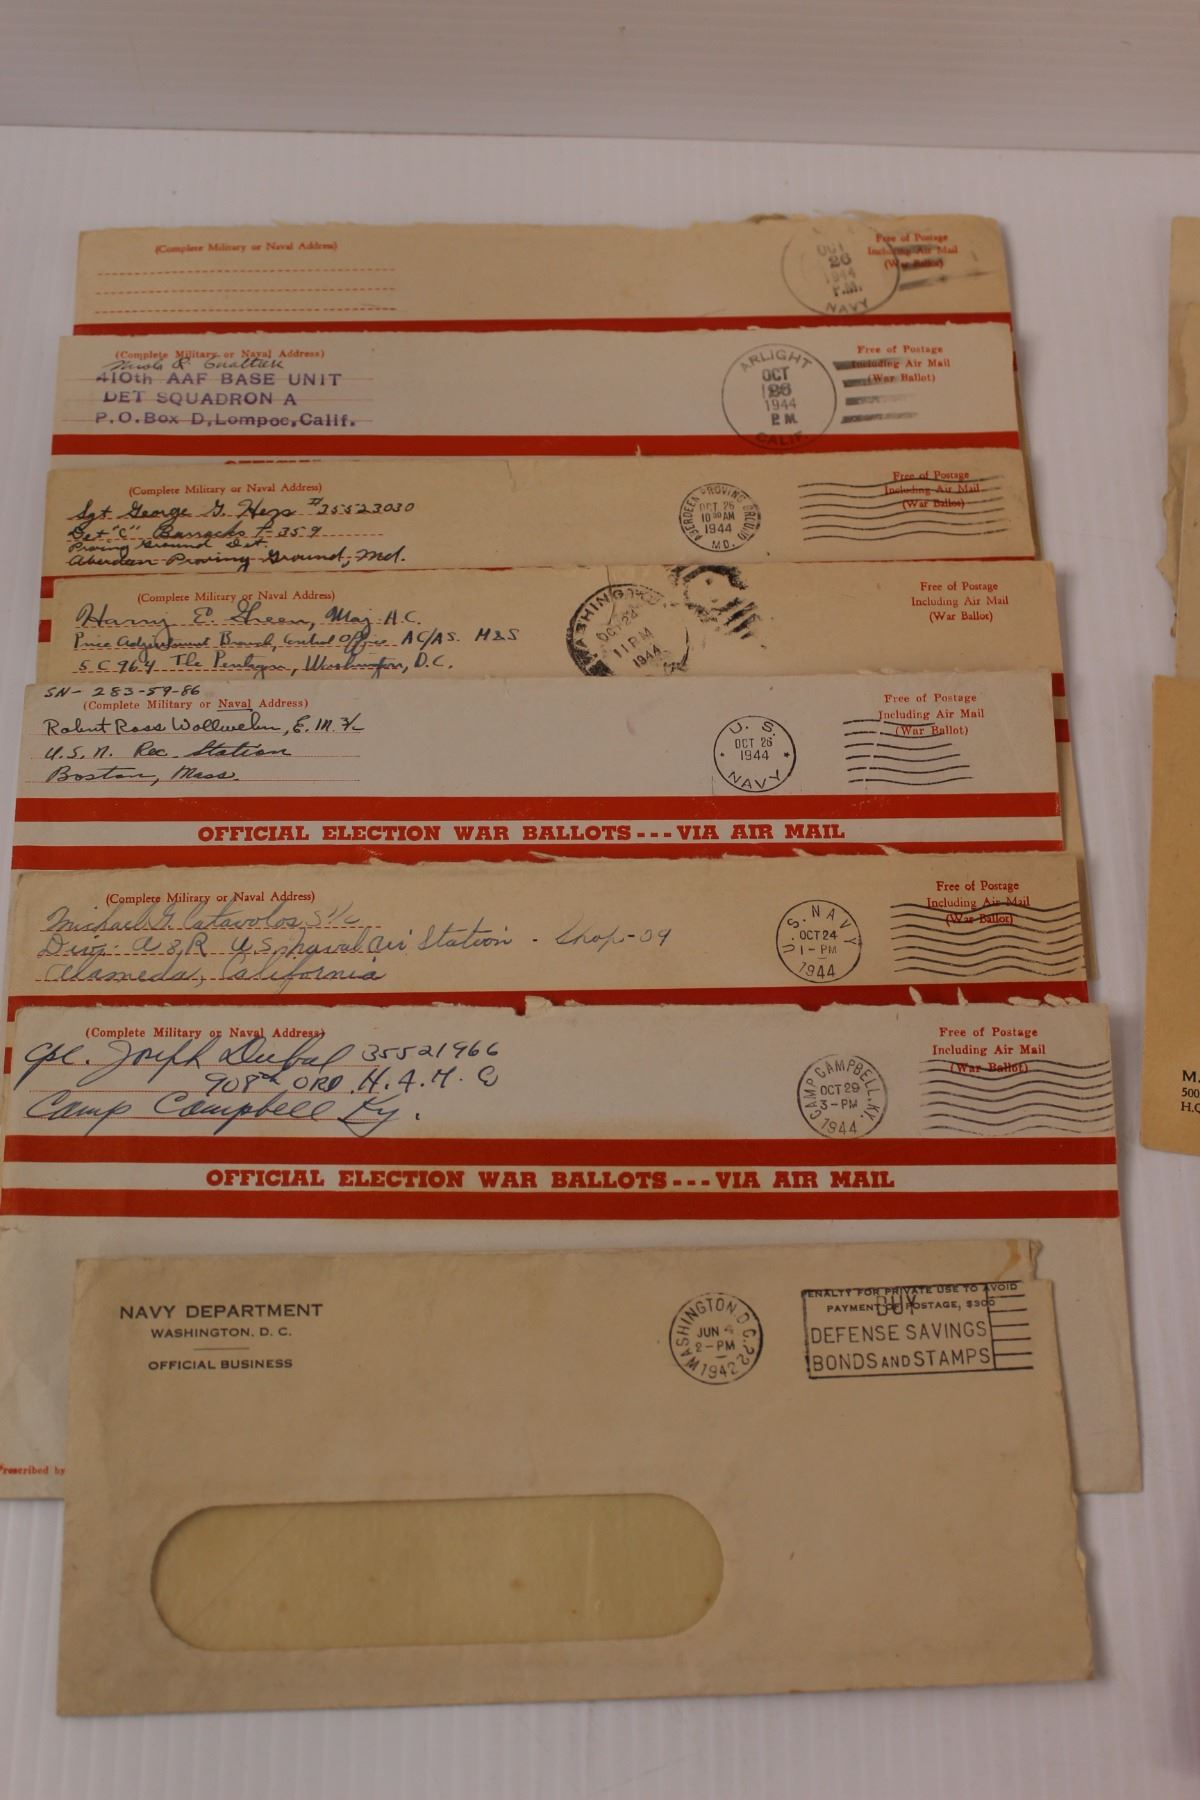 (Complete Military or Naval Address)
OCT
26
1944
P.M.
NAVY
Free of Postage
Including Air Mail
(War Ballot)
(Complete Military or Naval Address)
410th AAF BASE UNIT
DET SQUADRON A
P.O.Box D,Lompoc,Calif.
ARLIGHT
OCT
1944
P.M.
CALIF.
Free of Postage
Including Air Mail
(War Ballot)
(Complete Military or Naval Address)
Sgt George G. Hess #35523030
Det "C" Barracks P-359
Proving Ground Det.
Aberdeen Proving Ground, Md.
ABERDEEN PROVING GROUND
OCT 26
10 AM
1944
MD.
Free of Postage
Including Air Mail
(War Ballot)
(Complete Military or Naval Address)
Harry E. Green, Maj. A.C.
Price Adjustment Branch, Central Office AC/AS. M&S
5 C 964 The Pentagon, Washington, D.C.
WASHINGTON
OCT 24
11 PM
1944
Free of Postage
Including Air Mail
(War Ballot)
SN- 283-59-86
(Complete Military or Naval Address)
Robert Ross Wollwebn, E.M. 3/c
U.S.N. Rec. Station
Boston, Mass.
U. S.
OCT 26
1944
NAVY
Free of Postage
Including Air Mail
(War Ballot)
OFFICIAL ELECTION WAR BALLOTS---VIA AIR MAIL
(Complete Military or Naval Address)
Michael G. Catavolos S 1/c
Div: A & R U.S. Naval Air Station - Shop-09
Alameda, California
U.S. NAVY
OCT 24
1-PM
1944
Free of Postage
Including Air Mail
(War Ballot)
(Complete Military or Naval Address)
Cpl. Joseph Dubal 35521966
908th ORD. H.A.M. Co
Camp Campbell Ky.
CAMP CAMPBELL, KY.
OCT 29
3-PM
1944
Free of Postage
Including Air Mail
(War Ballot)
OFFICIAL ELECTION WAR BALLOTS---VIA AIR MAIL
Prescribed by
NAVY DEPARTMENT
WASHINGTON, D. C.
OFFICIAL BUSINESS
WASHINGTON, D.C. 22
JUN 4
2-PM
1942
PENALTY FOR PRIVATE USE TO AVOID
PAYMENT OF POSTAGE, $300
BUY
DEFENSE SAVINGS
BONDS AND STAMPS
M.
500
H.C